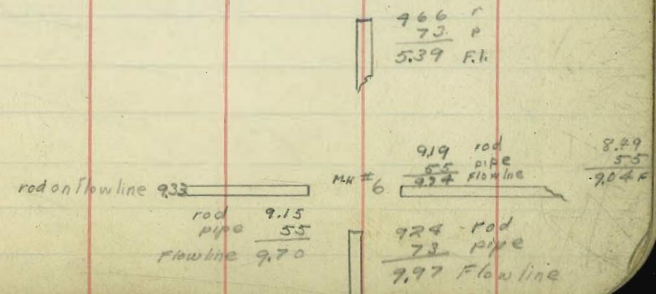 466 r
73 P
5.39 F.l.
9.19 rod
55 pipe
9.74 Flowline
8.49
55
9.04 F
rod on flowline 9.33
M.H # 6
rod 9.15
pipe 55
Flowline 9.70
924 rod
73 pipe
9.97 Flowline